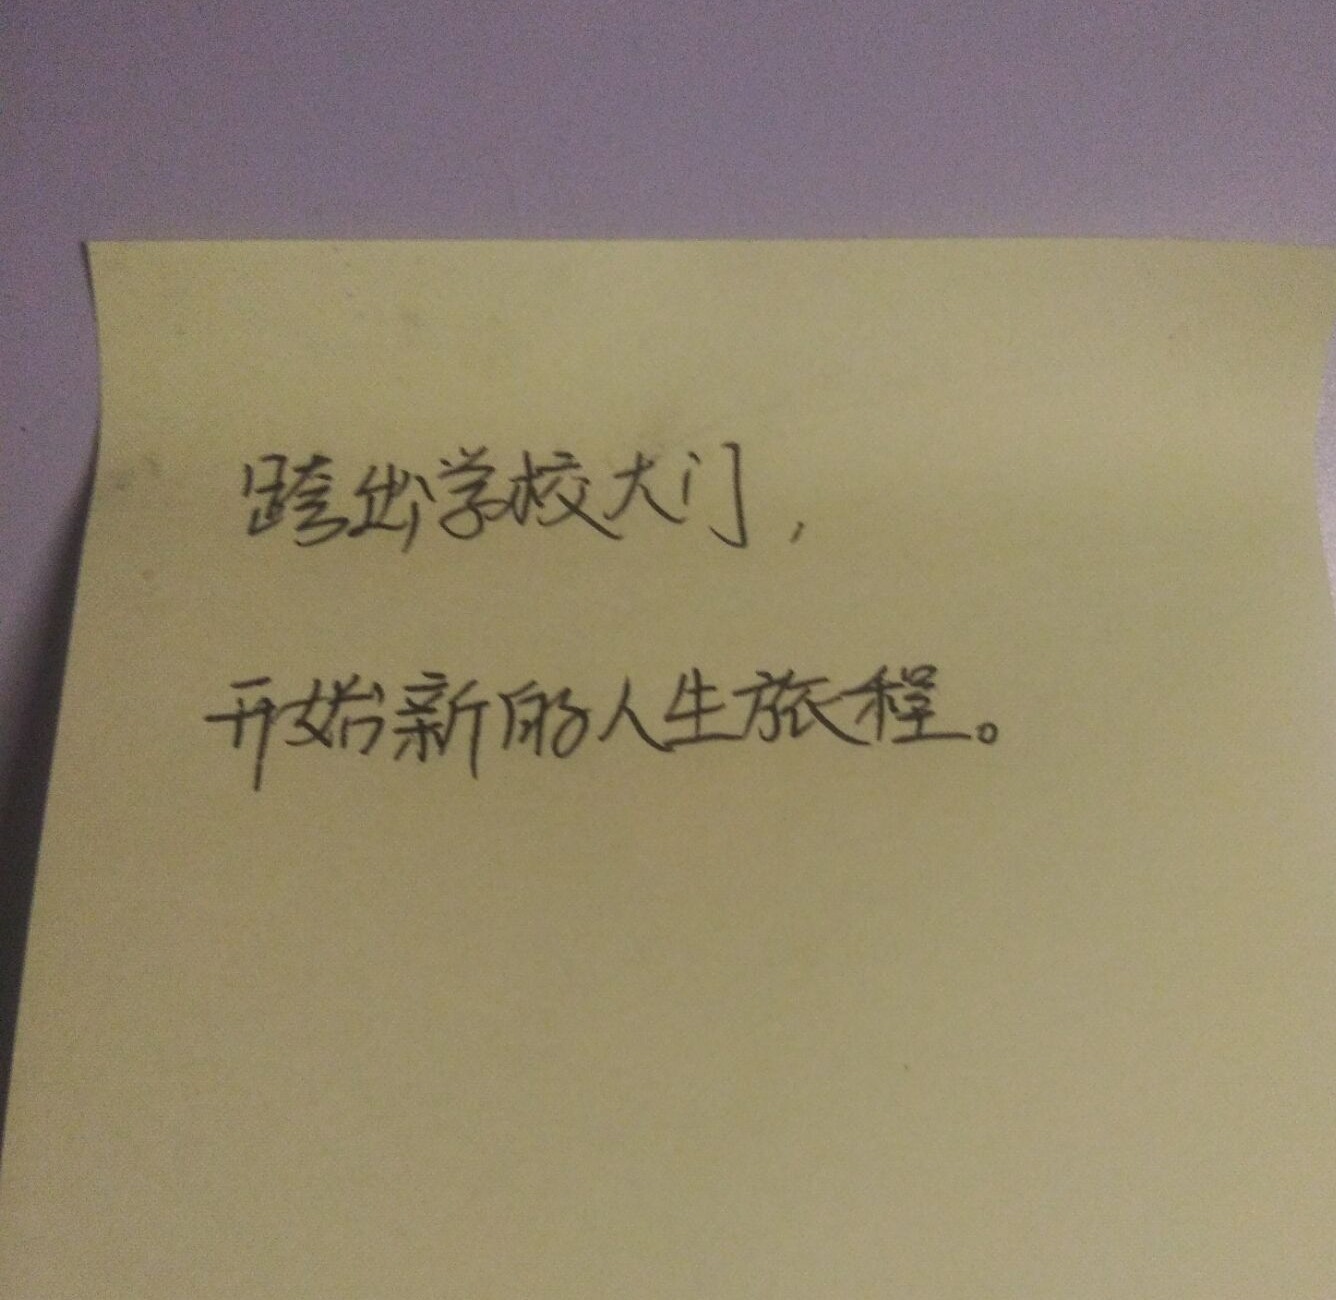 跨出学校大门,
开始新的人生旅程。